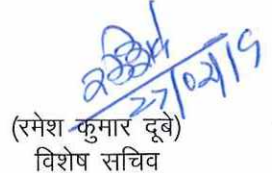 27/02/19
(रमेश कुमार दूबे)
विशेष सचिव